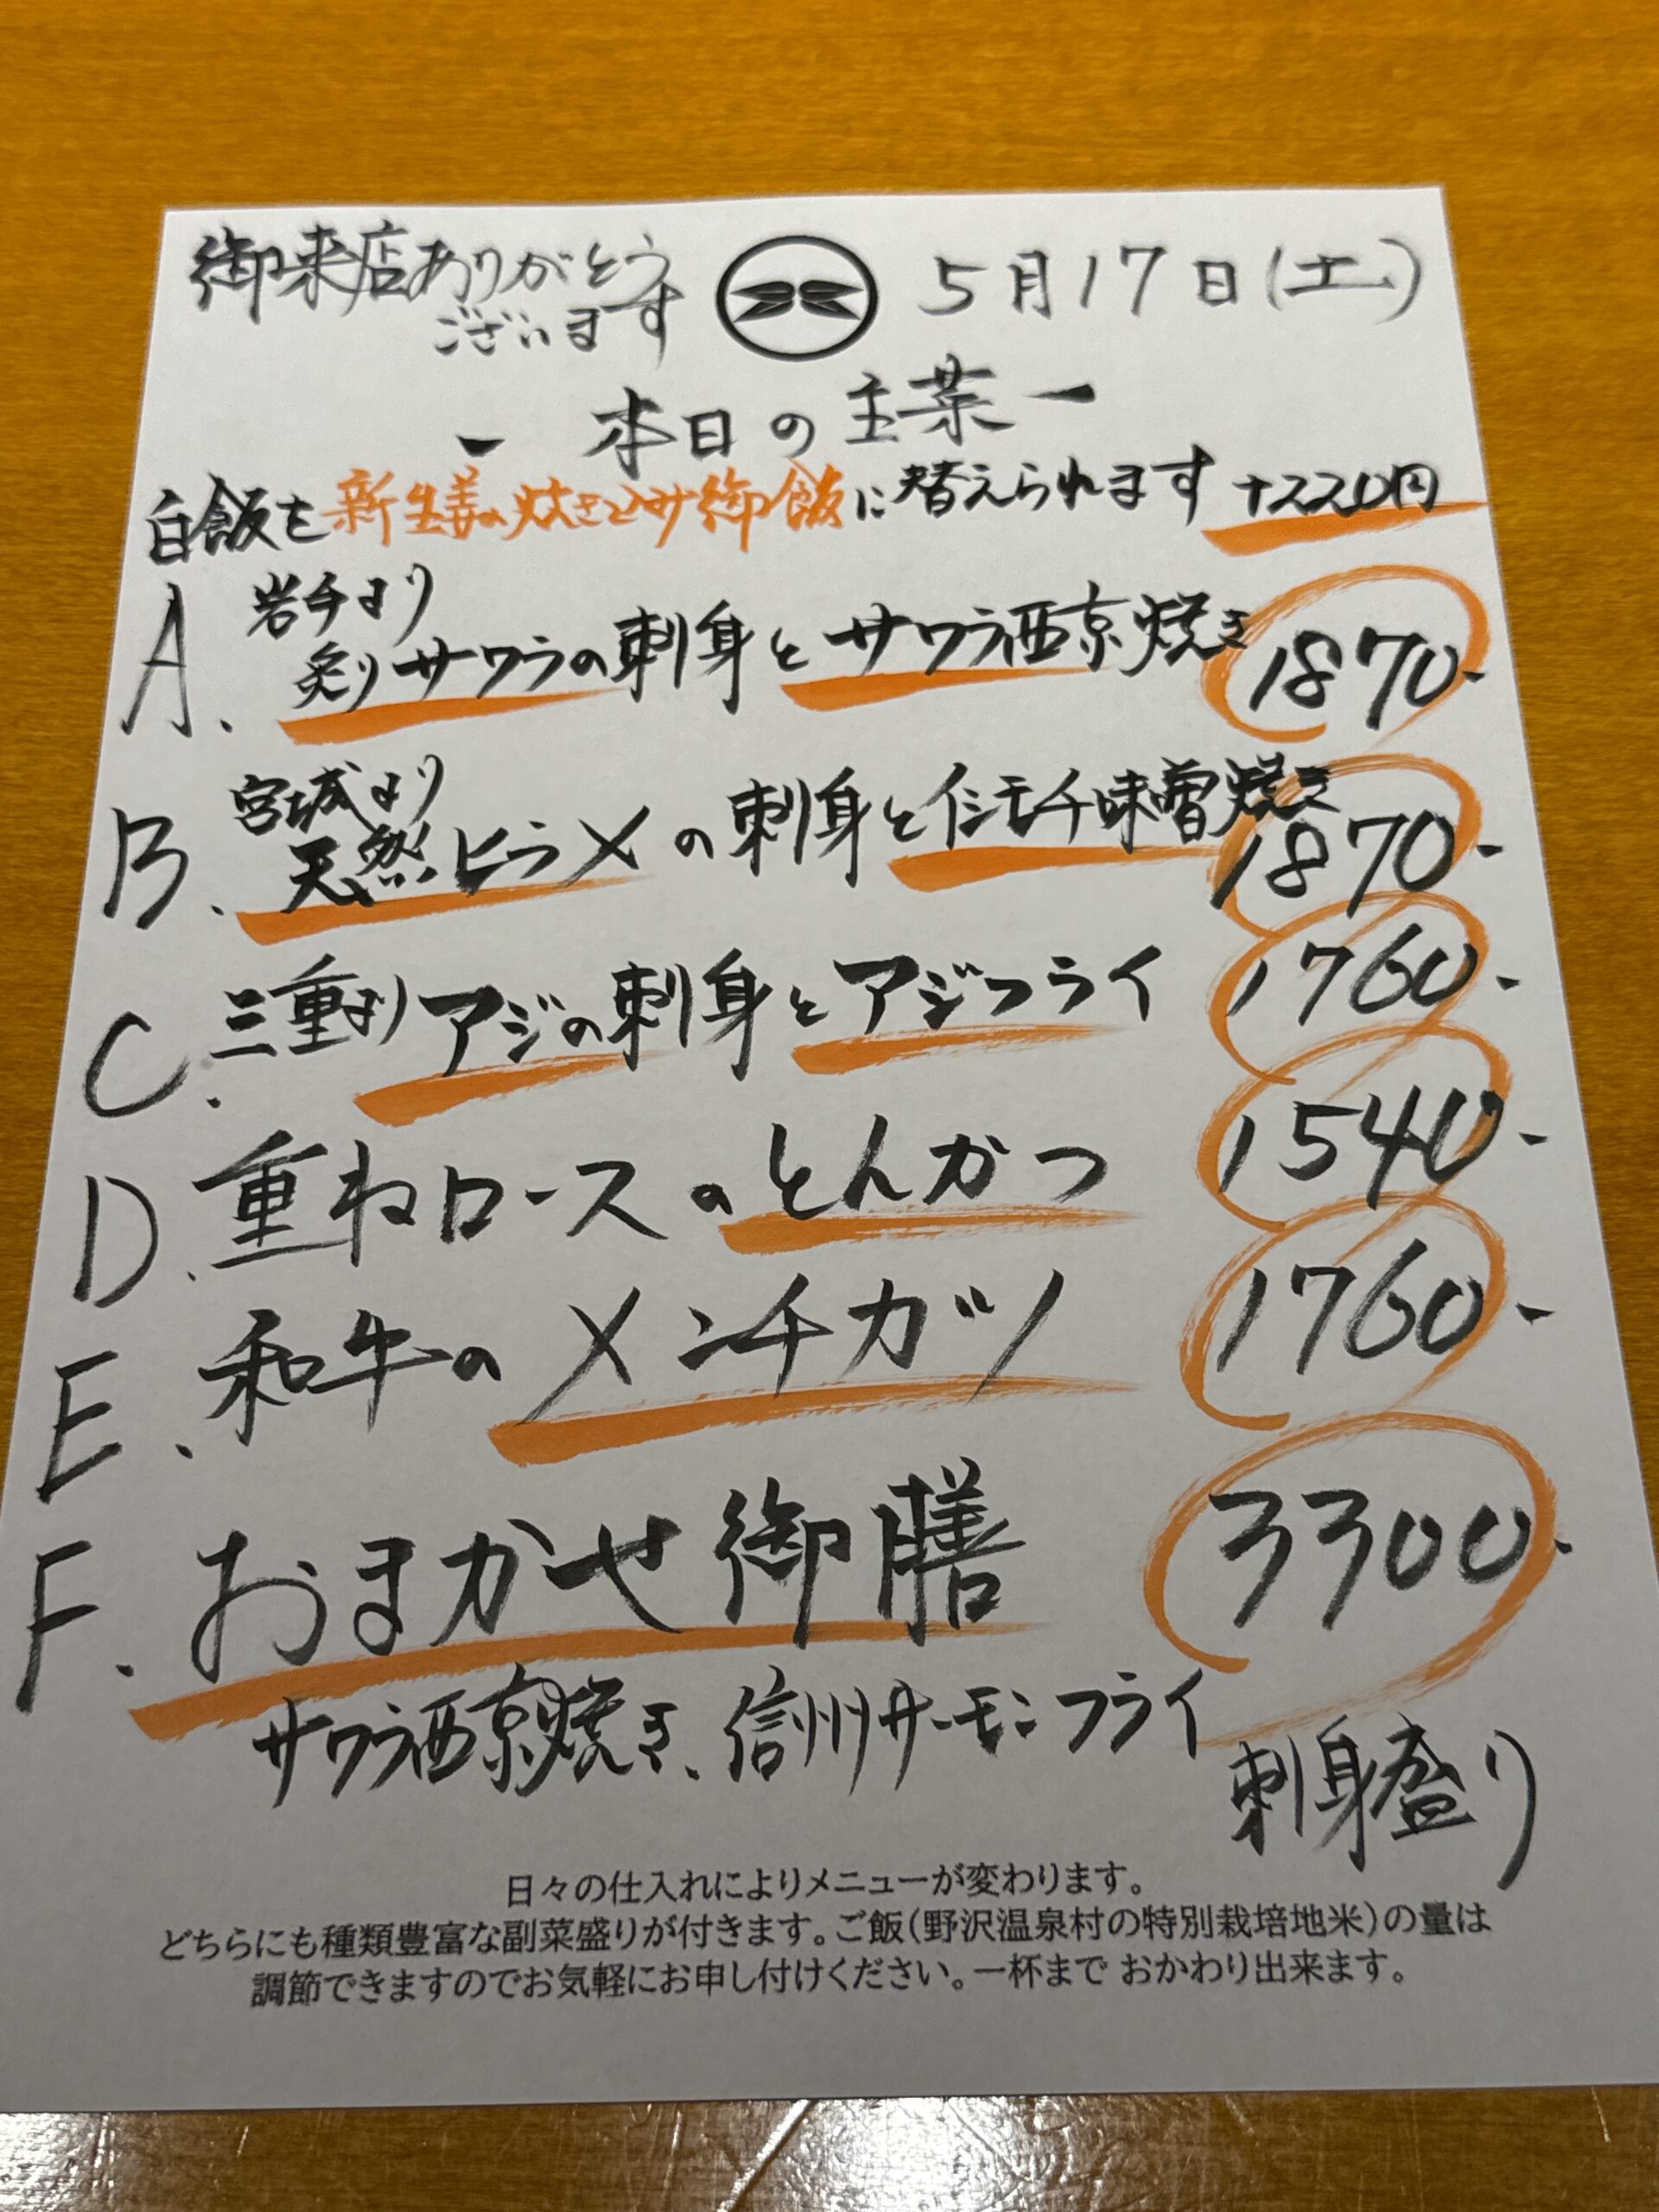 御来店ありがとう
ございます
5月17日(土)
- 本日の主菜 -
白飯を新生姜の炊き込み御飯に替えられます +220円
A. 岩手より
炙りサワラの刺身とサワラ西京焼き 1870-
B. 宮城より
天然ヒラメの刺身とイシモチ味噌焼き 1870-
C. 三重より アジの刺身とアジフライ 1760-
D. 重ねロースのとんかつ 1540-
E. 和牛のメンチカツ 1760-
F. おまかせ御膳 3300-
サワラ西京焼き、信州サーモンフライ
刺身盛り
日々の仕入れによりメニューが変わります。
どちらにも種類豊富な副菜盛りが付きます。ご飯(野沢温泉村の特別栽培地米)の量は
調節できますのでお気軽にお申し付けください。一杯まで おかわり出来ます。